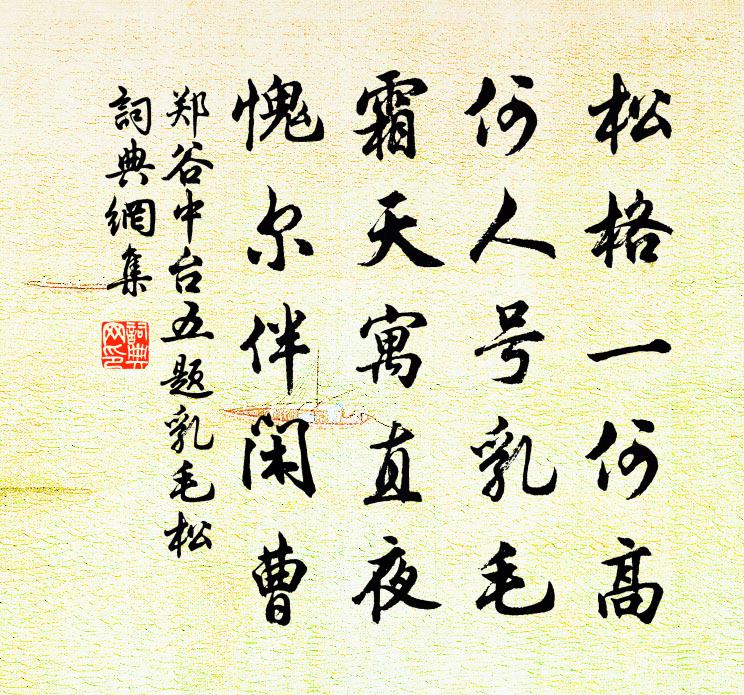 松格一何高
何人号乳毛
霜天寓直夜
愧尔伴闲曹
郑谷中台五题乳毛松
詞典網集
詞典网印